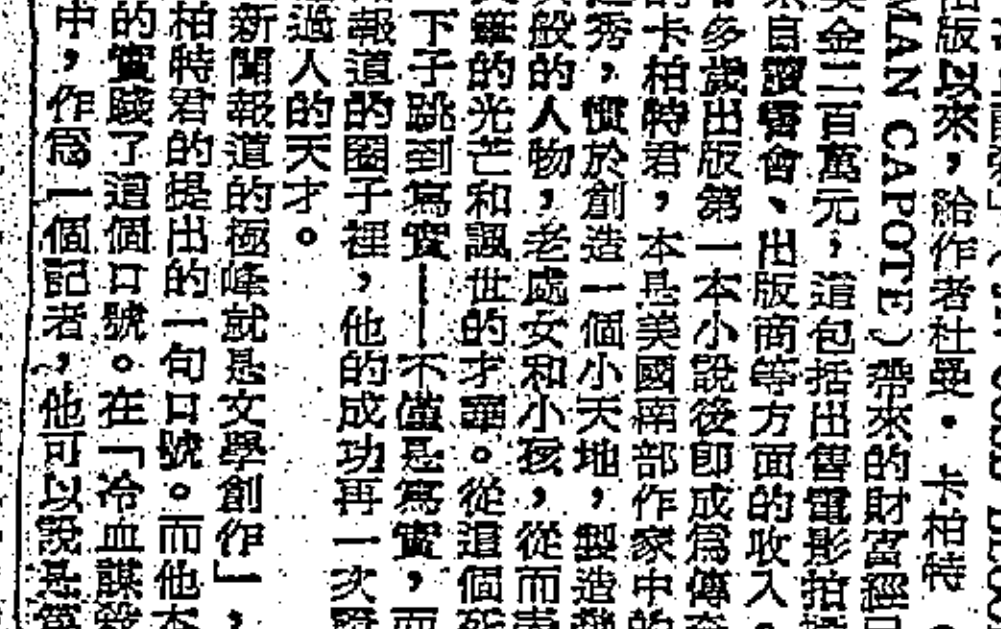 出版以來，給作者杜曼．卡柏特
MAN CAPOTE）帶來的財富經已
美金二百萬元，這包括出售電影拍
來自讀書會、出版商等方面的收入。
多歲出版第一本小說後即成為傳奇
的卡柏特君，本是美國南部作家中的
秀，慣於創造一個小天地，製造
般的人物，老處女和小孩，從而表
的光芒和諷世的才華。從這個
下子跳到寫實——不僅是寫實，而
報道的圈子裡，他的成功再一次證
過人的天才。
新聞報道的極峰就是文學創作」，
柏特君的提出的一句口號。而他本
的實踐了這個口號。在「冷血謀殺
中，作為一個記者，他可以說是第